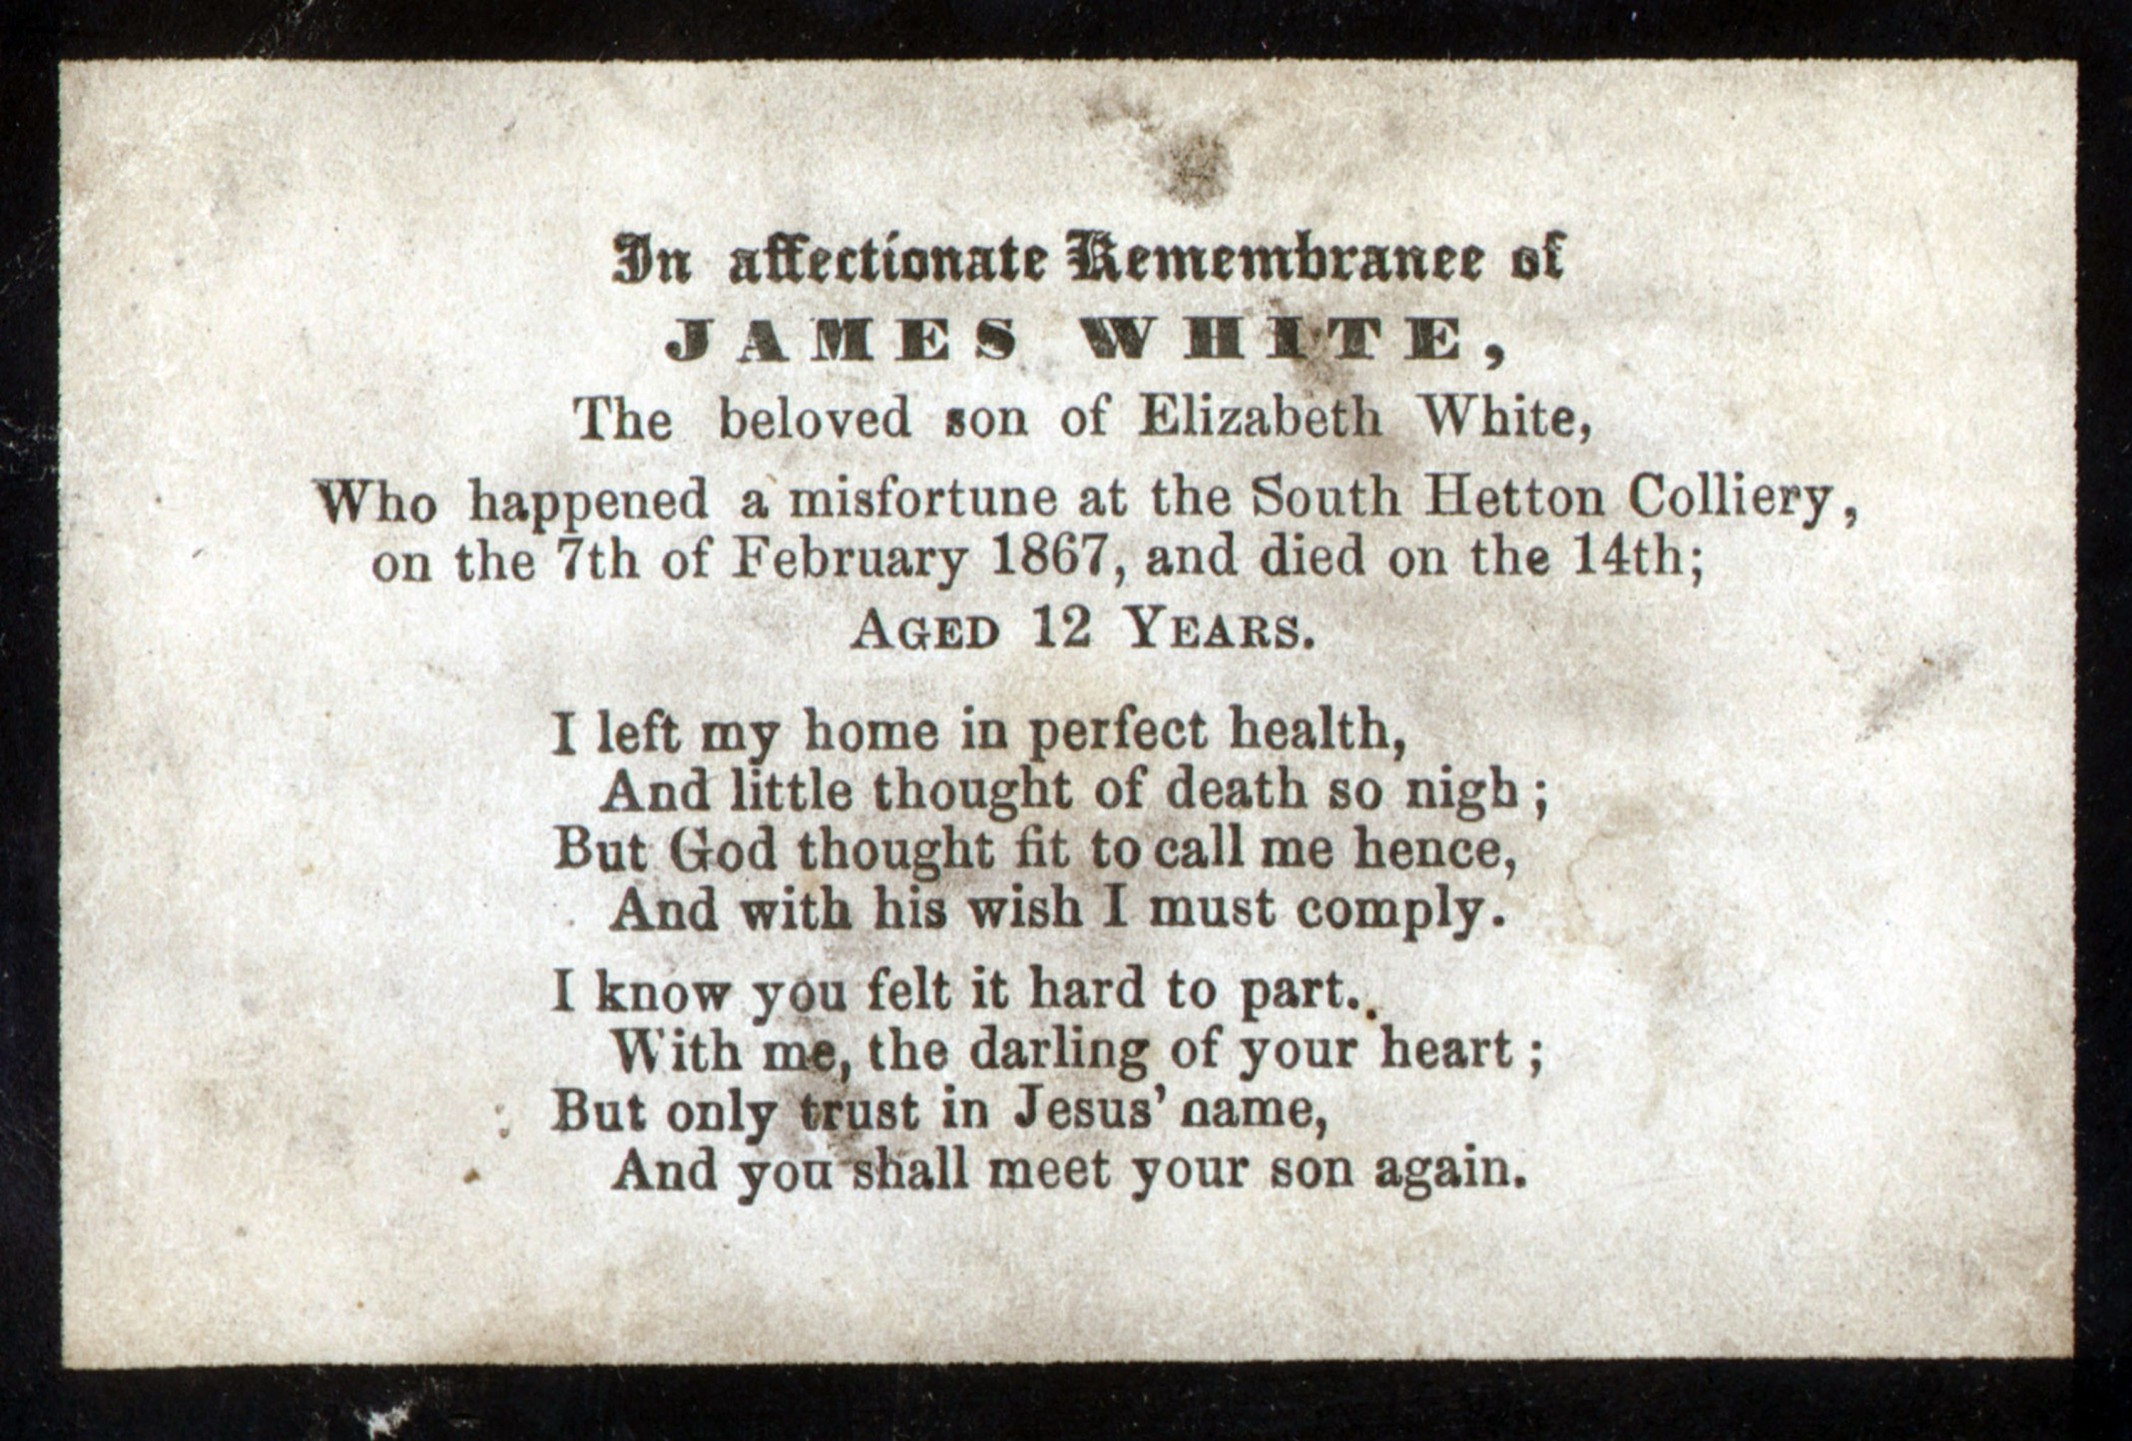 In affectionate Remembrance of
JAMES WHITE,
The beloved son of Elizabeth White,
Who happened a misfortune at the South Hetton Colliery,
on the 7th of February 1867, and died on the 14th;
AGED 12 YEARS.
I left my home in perfect health,
And little thought of death so nigh;
But God thought fit to call me hence,
And with his wish I must comply.
I know you felt it hard to part.
With me, the darling of your heart;
But only trust in Jesus' name,
And you shall meet your son again.